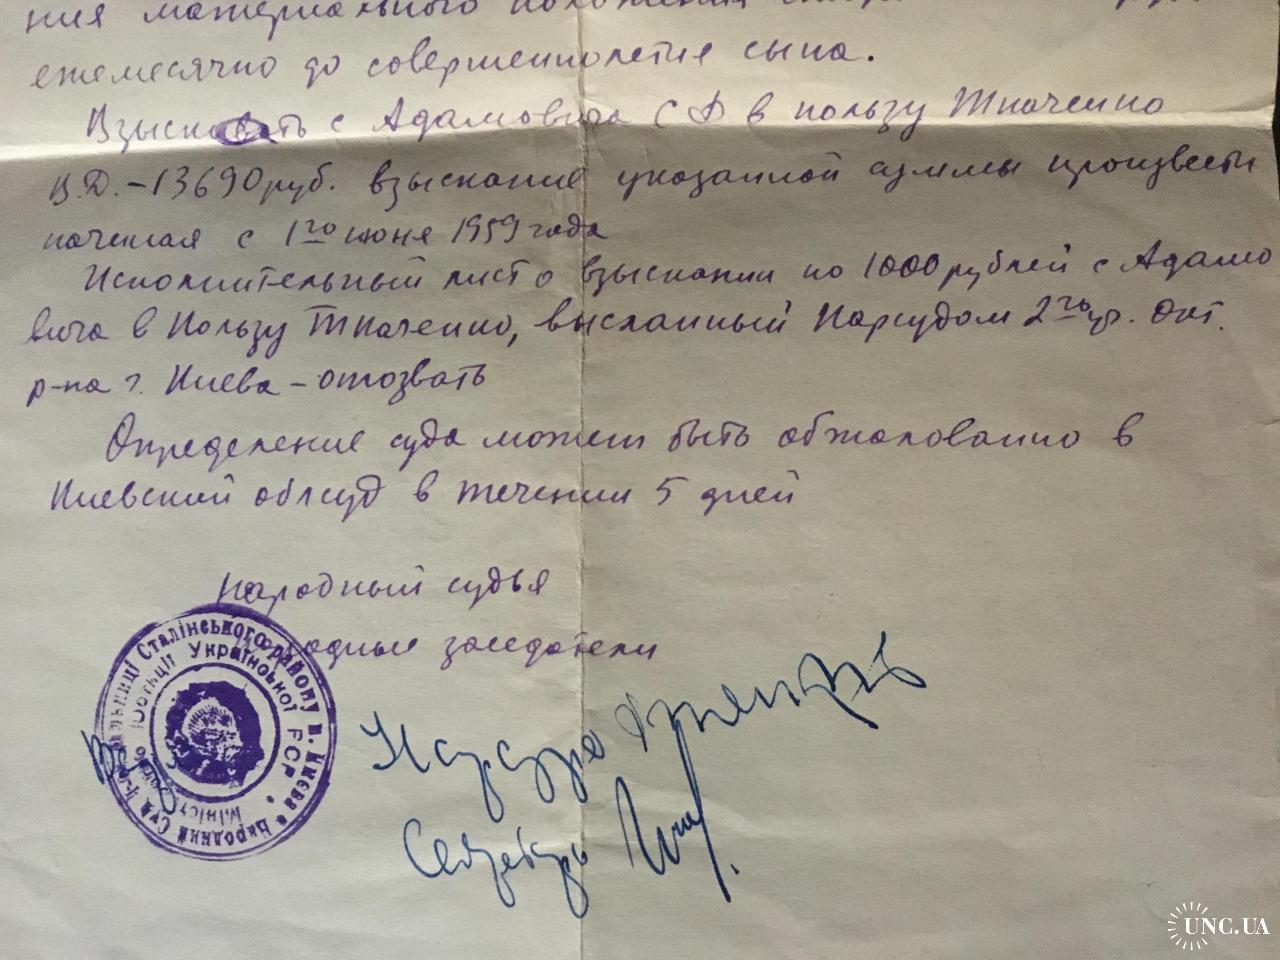 ния материального положения
ежемесячно до совершеннолетия сына.
Взыскать с Адамовича С Ф в пользу Ткаченко
В.Д. – 13690 руб. взыскание указанной суммы произвести
начиная с 1го июня 1959 года
Исполнительный лист о взыскании по 1000 рублей с Адамо
вича в пользу Ткаченко, высланный Нарсудом 2го уч. Окт.
р-на г. Киева – отозвать
Определение суда может быть обжалованно в
Киевский облсуд в течении 5 дней
Народный судья
родные заседатели
Народний Суд 4-ої дільниці Сталінського району м. Києва
Міністерство Юстиції Української РСР
Секретарь
UNC.UA